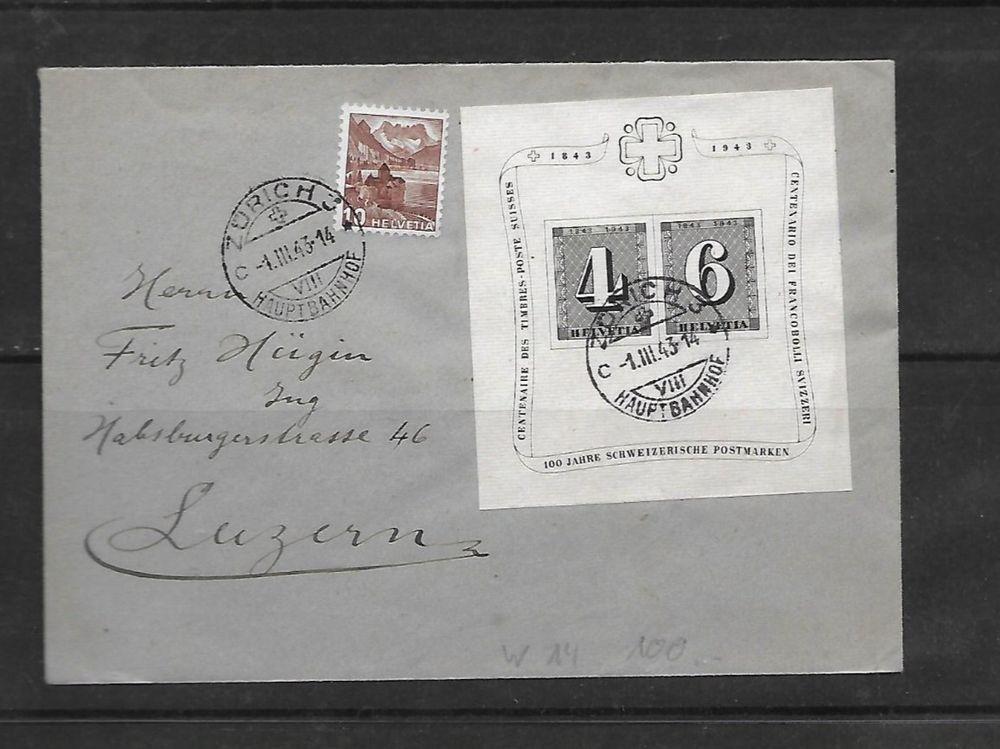 10 HELVETIA
ZÜRICH 3
C -1.III.43-14
VIII
HAUPTBAHNHOF
1843 1943
CENTENAIRE DES TIMBRES-POSTE SUISSES
CENTENARIO DEI FRANCOBOLLI SVIZZERI
1843 1943
4
HELVETIA
1843 1943
6
HELVETIA
ZÜRICH 3
C -1.III.43-14
VIII
HAUPTBAHNHOF
100 JAHRE SCHWEIZERISCHE POSTMARKEN
Herrn
Fritz Hügin
Ing
Habsburgerstrasse 46
Luzern
W 14 100.-